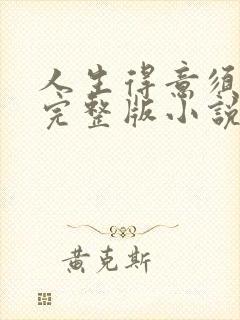 人生得意須
完整版小說
黄克斯